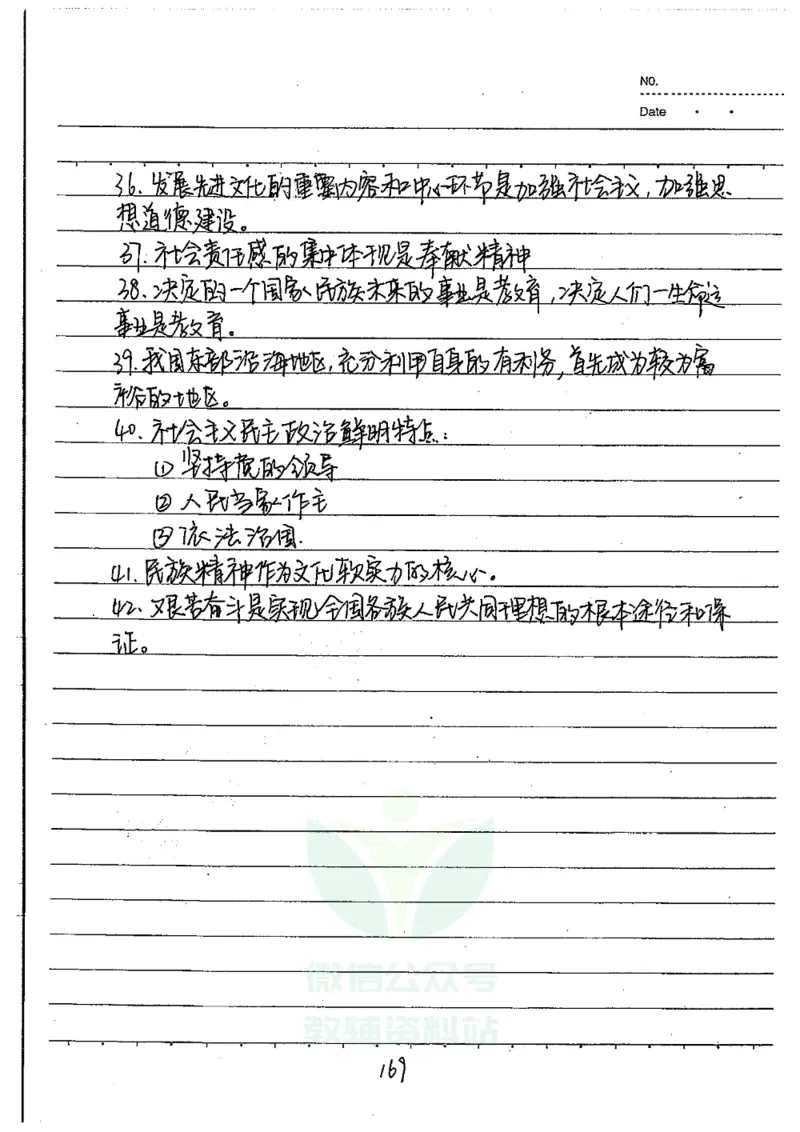 NO.
Date
36. 发展先进文化的重要内容和中心环节是加强社会主义，加强思
想道德建设。
37. 社会责任感的集中体现是奉献精神
38. 决定的一个国家、民族未来的事业是教育，决定人们一生命运
事业是教育。
39. 我国东部沿海地区，充分利用自身的有利务，首先成为较为富
裕的地区。
40. 社会主义民主政治鲜明特点：
① 坚持党的领导
② 人民当家作主
③ 依法治国.
41. 民族精神作为文化软实力的核心。
42. 艰苦奋斗是实现全国各族人民共同理想的根本途径和保
证。
微信公众号
教辅资料站
169